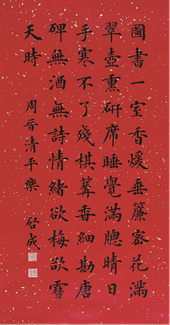 圖書一室香煖垂簾密花滿
翠壺熏研席睡覺滿牕晴日
手寒不了殘棋篝香細勘唐
碑無酒無詩情緒欲梅欲雪
天時
周晉清平樂